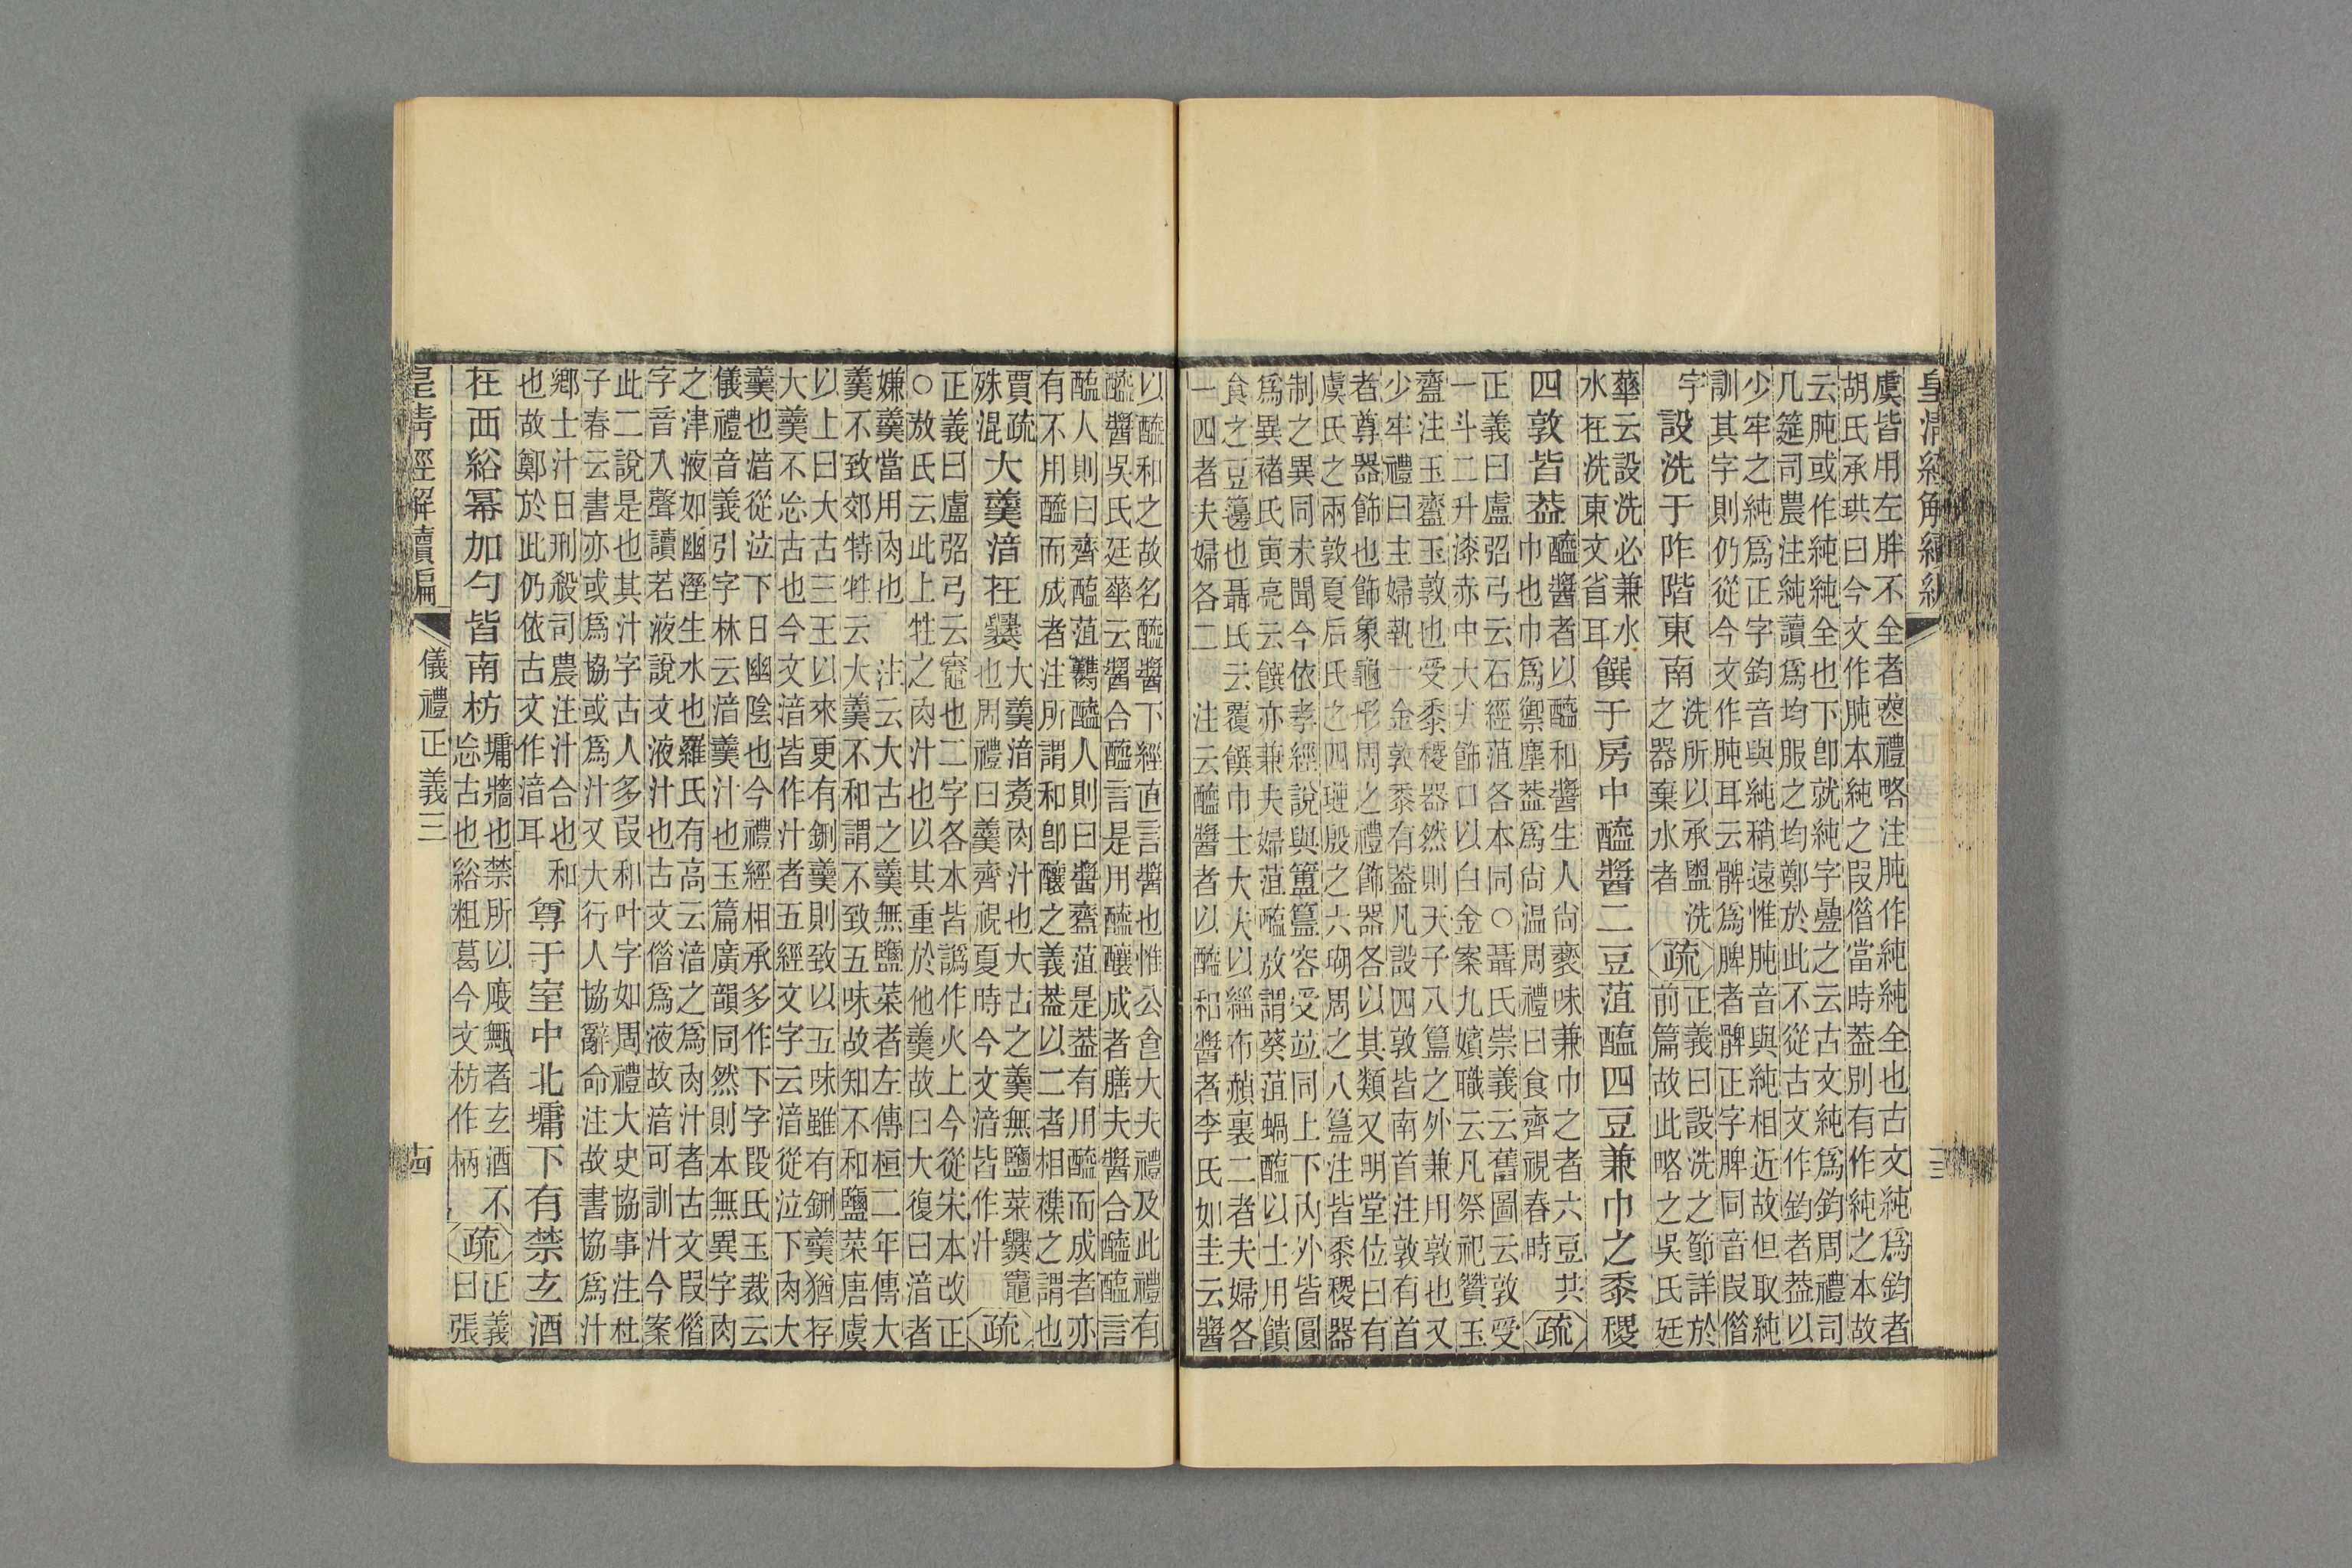 皇清經解續編
虞皆用左胖不全者喪禮略注肫作純純全也古文純爲鈞者
胡氏承珙曰今文作肫本純之叚借當時葢別有作純之本故
云肫或作純純全也下卽就純字疊之云古文純爲鈞周禮司
几筵司農注純讀爲均服之均鄭於此不從古文作鈞者葢以
少牢之純爲正字鈞音與純稍遠惟肫音與純相近故但取純
訓其字則仍從今文作肫耳云髀爲脾者髀正字脾同音叚借
字
設洗于阼階東南
洗所以承盥洗
之器棄水者
疏
正義曰設洗之節詳於
前篇故此略之吳氏廷
華云設洗必兼水
水在洗東文省耳
饌于房中醯醬二豆菹醢四豆兼巾之黍稷
四敦皆葢
醯醬者以醯和醬生人尚褻味兼巾之者六豆共
巾也巾爲禦塵葢爲尚温周禮曰食齊視春時
疏
正義曰盧弨弓云石經菹各本同○聶氏崇義云舊圖云敦受
一斗二升漆赤中大夫飾口以白金案九嬪職云凡祭祀贊玉
齍注玉齍玉敦也受黍稷器然則天子八簋之外兼用敦也又
少牢禮曰主婦執一金敦黍有葢凡設四敦皆南首注敦有首
者尊器飾也飾象龜形周之禮飾器各以其類又明堂位曰有
虞氏之兩敦夏后氏之四璉殷之六瑚周之八簋注皆黍稷器
制之異同未聞今依孝經說與簠簋容受竝同上下內外皆圓
爲異褚氏寅亮云饌亦兼夫婦菹醢敖謂葵菹蝸醢以士用饋
食之豆籩也聶氏云覆饌巾士大夫以緇布赬裏二者夫婦各
一四者夫婦各二 注云醯醬者以醯和醬者李氏如圭云醬
以醯和之故名醯醬下經直言醬也惟公食大夫禮及此禮有
醯醬吳氏廷華云醬合醯言是用醯釀成者膳夫醬合醯醢言
醢人則曰齊醢菹臡醯人則曰醬齍菹是葢有用醯而成者亦
有不用醯而成者注所謂和卽釀之義葢以二者相襍之謂也
賈疏
殊混
大羹湆在爨
大羹湆煑肉汁也大古之羹無鹽菜爨竈
也周禮曰羹齊視夏時今文湆皆作汁
疏
正義曰盧弨弓云竈也二字各本皆譌作火上今從宋本改正
○敖氏云此上牲之肉汁也以其重於他羹故曰大復曰湆者
嫌羹當用肉也 注云大古之羹無鹽菜者左傳桓二年傳大
羹不致郊特牲云大羹不和謂不致五味故知不和鹽菜唐虞
以上曰大古三王以來更有鉶羹則致以五味雖有鉶羹猶存
大羹不忘古也今文湆皆作汁者五經文字云湆從泣下肉大
羹也湆從泣下日幽陰也今禮經相承多作下字段氏玉裁云
儀禮音義引字林云湆羹汁也玉篇廣韻同然則本無異字肉
之津液如幽溼生水也羅氏有高云湆之爲肉汁者古文叚借
字音入聲讀若液說文液汁也古文借爲液故湆可訓汁今案
此二說是也其汁字古人多叚和叶字如周禮大史協事注杜
子春云書亦或爲協或爲汁又大行人協辭命注故書協爲汁
鄉士汁日刑殺司農注汁合也和
也故鄭於此仍依古文作湆耳
尊于室中北墉下有禁玄酒
在西綌幂加勺皆南枋
墉牆也禁所以庪甒者玄酒不
忘古也綌粗葛今文枋作柄
疏
正義
曰張
皇清經解續編
儀禮正義三
古